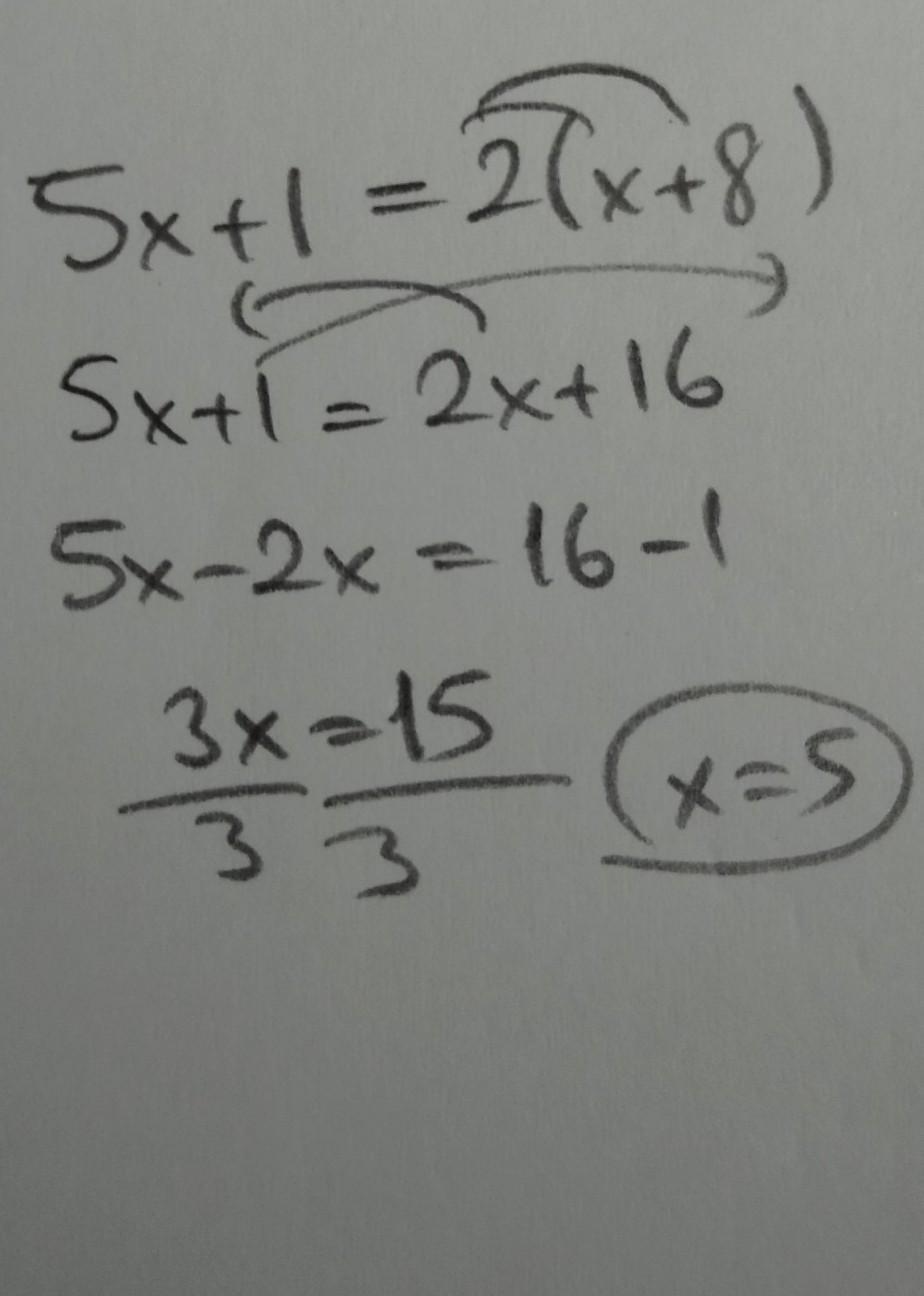 5x+1 = 2(x+8)
5x+1 = 2x+16
5x-2x = 16-1
3x = 15
3 3
x=5